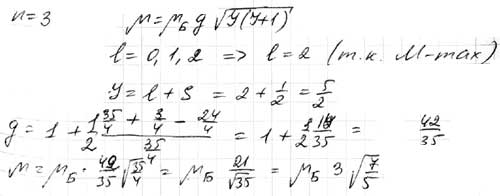 n = 3    μ = μ_Б g √(J(J+1))
l = 0, 1, 2 => l = 2 (т.к. M-max)
J = l + S = 2 + 1/2 = 5/2
g = 1 + 1/2 (35/4 + 3/4 - 24/4)/(35/4) = 1 + 1/2 · 14/35 = 42/35
μ = μ_Б · 42/35 √(35/4) = μ_Б 21/√35 = μ_Б 3 √(7/5)